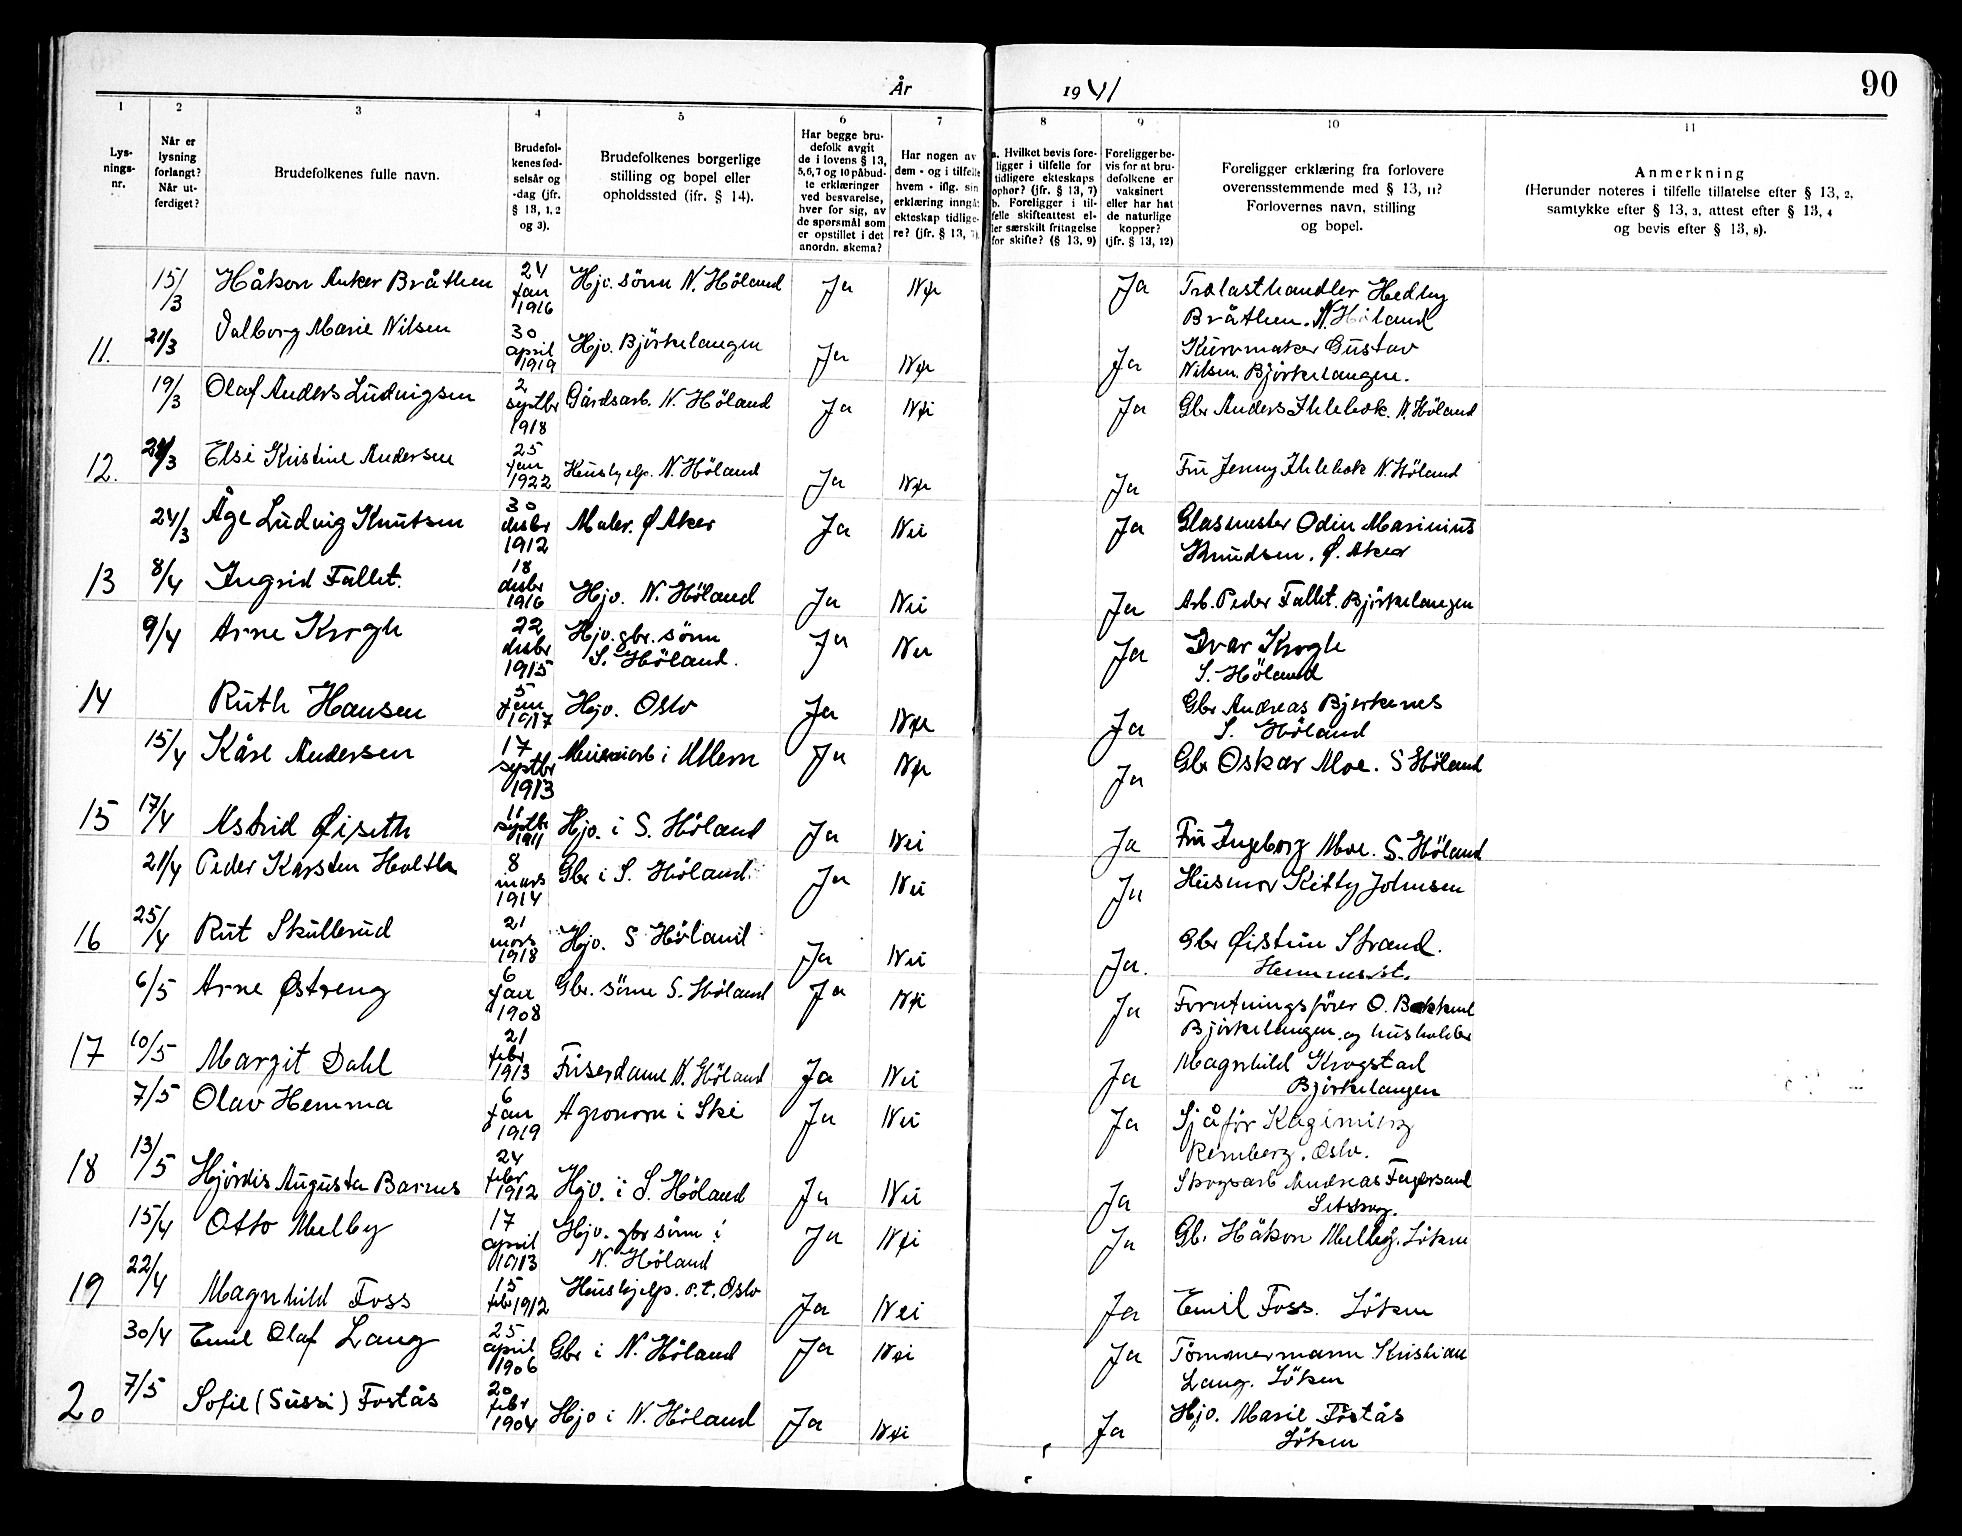 År 1941 90
1 2 3 4 5 6 7 8 9 10 11
Lys-
nings-
nr.
Når er
lysning
forlangt?
Når ut-
ferdiget?
Brudefolkenes fulle navn.
Brudefol-
kenes fød-
selsår og
-dag (jfr.
§ 13, 1, 2
og 3).
Brudefolkenes borgerlige
stilling og bopel eller
opholdssted (ifr. § 14).
Har begge bru-
defolk avgit
de i lovens § 13,
5, 6, 7 og 10 påbud-
te erklæringer
ved besvarelse,
hver for sig, av
de spørsmål som
er opstillet i det
anordn. skema?
Har nogen av
dem - og i tilfelle
hvem - iflg. sin
erklæring inngåt
ekteskap tidlige-
re? (jfr. § 13, 7).
a. Hvilket bevis fore-
ligger i tilfelle for
tidligere ekteskaps
ophør? (jfr. § 13, 7)
b. Foreligger i til-
felle skifteattest el-
ler særskilt fritagelse
for skifte? (§ 13, 9)
Foreligger be-
vis for at bru-
defolkene er
vaksinert
eller har hat
de naturlige
kopper?
(jfr. § 13, 12)
Foreligger erklæring fra forlovere
overensstemmende med § 13, 11?
Forlovernes navn, stilling
og bopel.
Anmerkning
(Herunder noteres i tilfelle tillatelse efter § 13, 2,
samtykke efter § 13, 3, attest efter § 13, 4
og bevis efter § 13, 8).
15/3 Håkon Anker Bråthen 24 jan 1916 Hjv. sönn N. Höland Ja Nei Ja Trelasthandler Hedley
Bråthen. N. Höland
11. 21/3 Valborg Marie Nilsen 30 april 1919 Hjv. Björkelangen Ja Nei Ja Kurvmaker Gustav
Nilsen. Björkelangen.
19/3 Olaf Anders Ludvigsen 2 septbr 1918 Gårdsarb. N. Höland Ja Nei Ja Gbr Anders Ihlebæk. N. Höland
12. /3 Else Kristine Andersen 25 jan 1922 Hushjelp. N. Höland Ja Nei Ja Fru Jenny Ihlebæk N. Höland
24/3 Åge Ludvig Knutsen 30 desbr 1912 Maler. Ø Aker Ja Nei Ja Glasmester Odin Marinius
Knudsen. Ø. Aker
13 8/4 Ingrid Fallet. 18 desbr 1916 Hjv. N. Höland Ja Nei Ja Arb. Peder Fallet. Björkelangen
9/4 Arne Krogh 22 desbr 1915 Hjv. gbr. sönn
S. Höland. Ja Nei Ja Ivar Krogh
S. Höland
14 Ruth Hansen 5 jan 1917 Hjv. Oslo Ja Nei Ja Gbr Andreas Bjerkenes
S. Höland
15/4 Kåre Andersen 17 septbr 1913 i Ullern Ja Nei Ja Gbr Oskar Moe. S Höland
15 17/4 Astrid Øiseth 11 septbr 1911 Hjv. i S. Höland Ja Nei Ja Fru Ingeborg Moe. S. Höland
21/4 Peder Karsten Holtla 8 mars 1914 Gbr i S. Höland. Ja Nei Ja Husmor Kitty Johnsen
16 25/4 Rut Skullerud 21 mars 1918 Hjv. S Höland Ja Nei Ja. Gbr Øistein Strand.
Hemnes st.
6/5 Arne Østreng 6 jan 1908 Gbr. sönn S. Höland Ja Nei Ja Forretningsförer O. Bakkend
Björkelangen og husholder
17 10/5 Margit Dahl 21 febr 1913 Friserdame N. Höland Ja Nei Ja Magnhild Krogstad
Björkelangen
7/5 Olav Hemma 6 jan 1919 Agronom i Ski Ja Nei Ja Sjåför Kagiming
Remberg. Oslo.
18 13/5 Hjördis Augusta Barnes 24 febr 1912 Hjv. i S. Höland Ja Nei Ja Skogsarb Andreas Fagersand
Setskog.
15/4 Otto Melby 17 april 1913 Hjv. gbr sönn i
N. Höland Ja Nei Ja Gb. Håkon Melby. Löken
19 22/4 Magnhild Foss 15 febr 1912 Hushjelp. p.t. Oslo Ja Nei Ja Emil Foss. Löken
30/4 Emil Olaf Lang 25 april 1906 Gbr i N. Höland Ja Nei Ja Tömmermann Kristian
Lang. Löken
20 7/5 Sofie (Sussi) Fostås 20 febr 1904 Hjv i N. Höland Ja Nei Ja Hjv. Marie Fostås
Löken